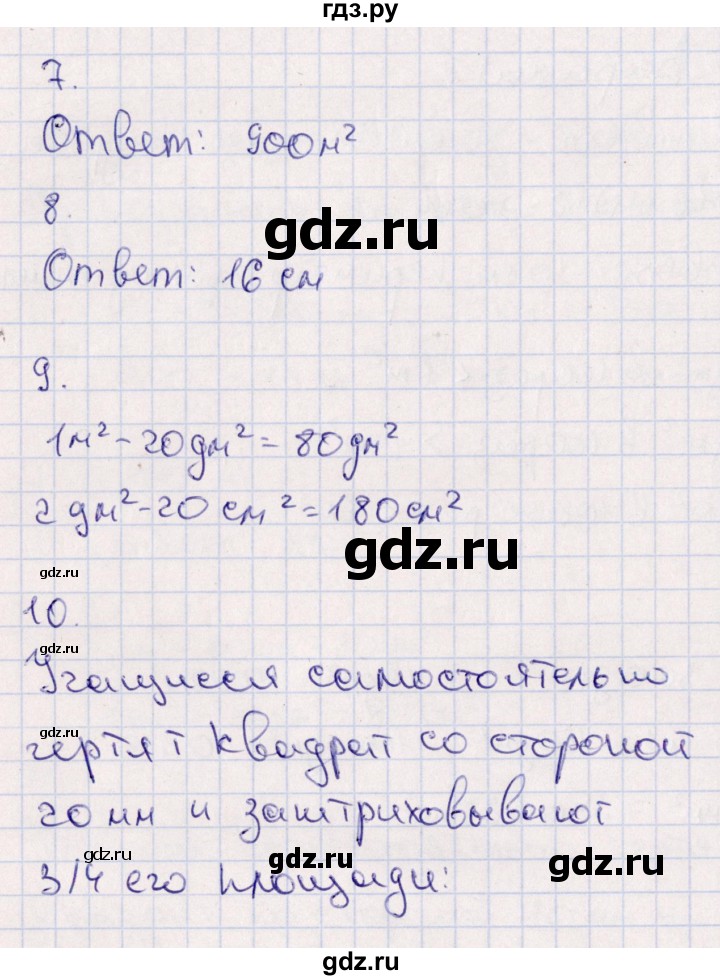 гдз.ру
7.
Ответ: 900 м²
8.
gdz.ru
Ответ: 16 см
9.
1 м² - 20 дм² = 80 дм²
2 дм² - 20 см² = 180 см²
gdz.ru
gdz.ru
10.
gdz.ru
Учащиеся самостоятельно
gdz.ru
чертят квадрат со стороной
20 мм и заштриховывают
gdz.ru
gdz.ru
gdz.ru
3/4 его площади: